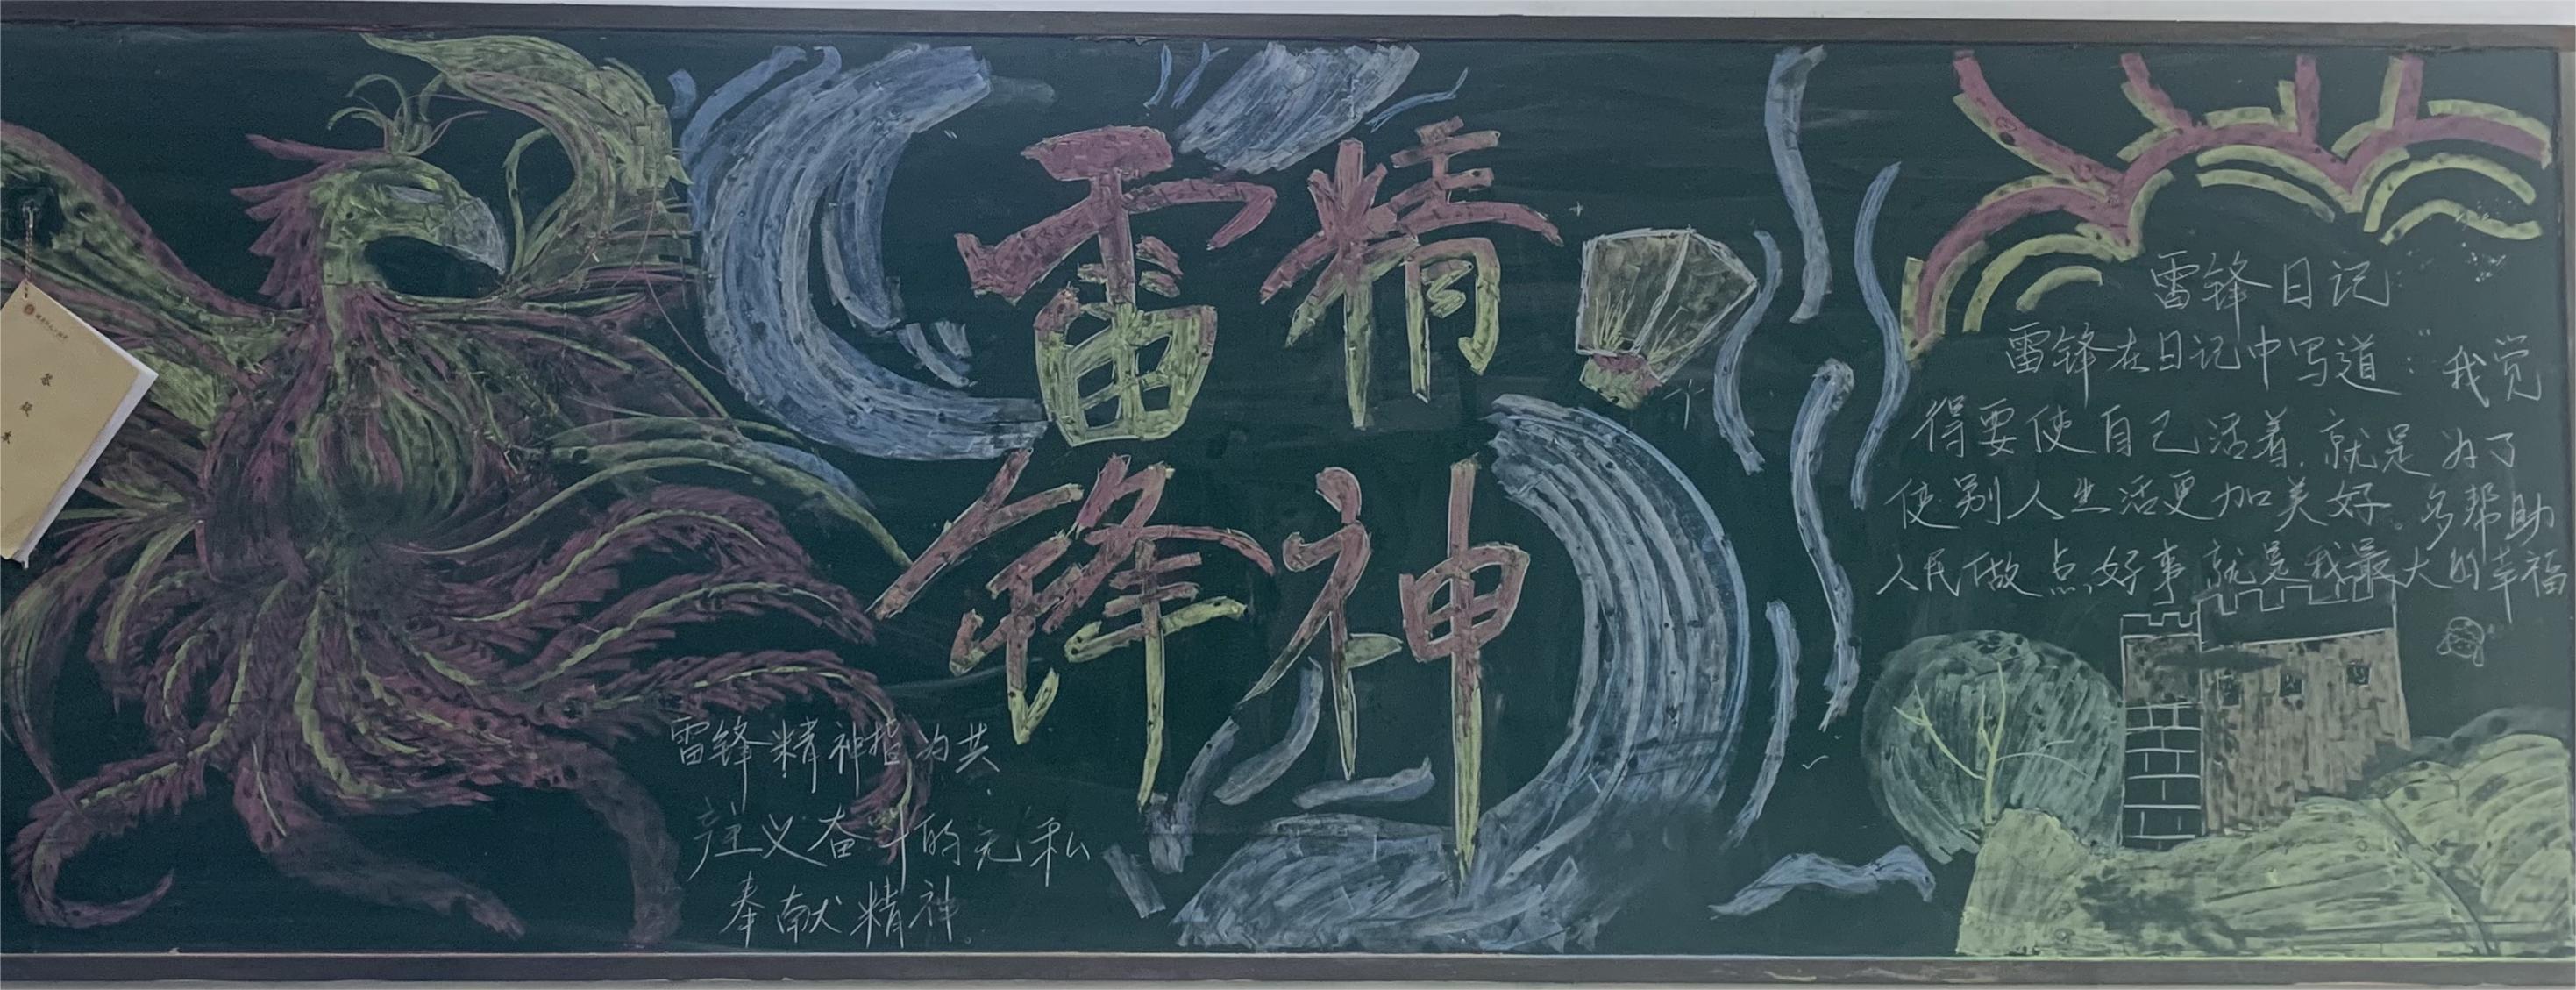 雷精
锋神
雷锋精神指为共
产主义奋斗的无私
奉献精神。
雷锋日记
雷锋在日记中写道:“我觉
得要使自己活着,就是为了
使别人生活更加美好。多帮助
人民做点好事就是我最大的幸福